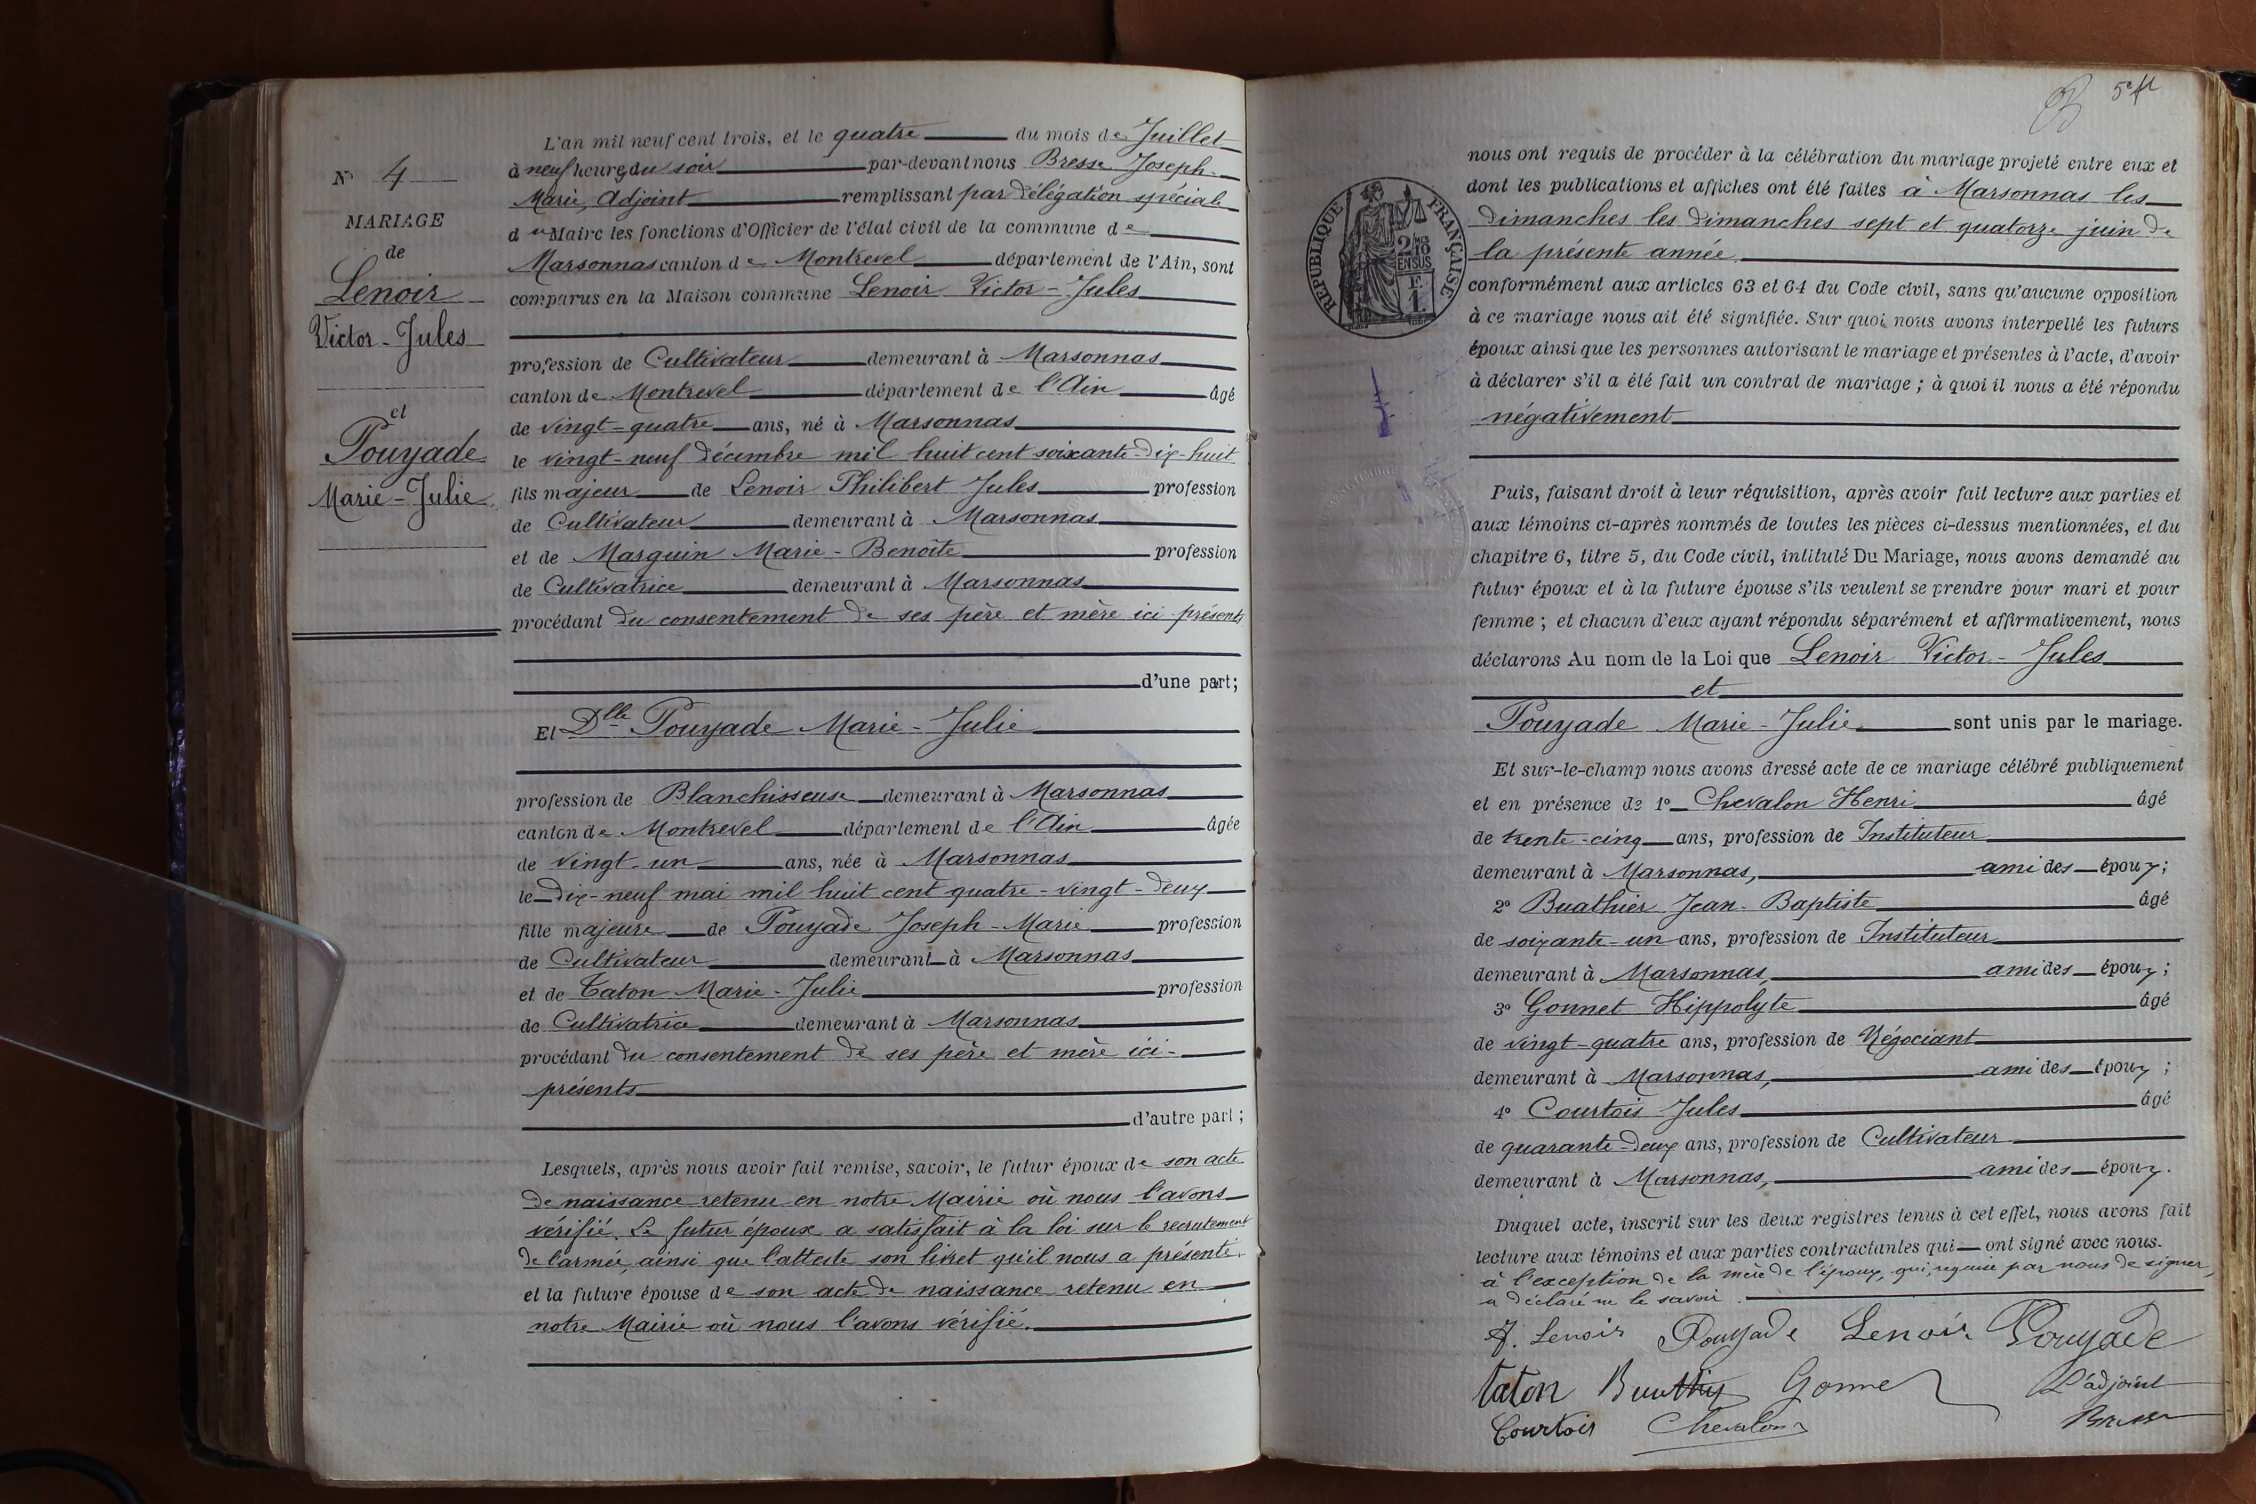 N° 4
MARIAGE
de
Lenoir
Victor-Jules
et
Pouyade
Marie-Julie
L'an mil neuf cent trois, et le quatre du mois de Juillet
à neuf heures du soir par-devant nous Bresse Joseph-
Marie, Adjoint remplissant par délégation spéciale
du Maire les fonctions d'Officier de l'état civil de la commune de
Marsonnas canton de Montrevel département de l'Ain, sont
comparus en la Maison commune Lenoir Victor-Jules
profession de Cultivateur demeurant à Marsonnas
canton de Montrevel département de l'Ain âgé
de vingt-quatre ans, né à Marsonnas
le vingt-neuf décembre mil huit cent soixante-dix-huit
fils majeur de Lenoir Philibert Jules profession
de Cultivateur demeurant à Marsonnas
et de Marguin Marie-Benoîte profession
de Cultivatrice demeurant à Marsonnas
procédant du consentement de ses père et mère ici présents
d'une part;
Et Dlle Pouyade Marie-Julie
profession de Blanchisseuse demeurant à Marsonnas
canton de Montrevel département de l'Ain âgée
de vingt-un ans, née à Marsonnas
le dix-neuf mai mil huit cent quatre-vingt-deux
fille majeure de Pouyade Joseph-Marie profession
de Cultivateur demeurant à Marsonnas
et de Taton Marie-Julie profession
de Cultivatrice demeurant à Marsonnas
procédant du consentement de ses père et mère ici-
présents
d'autre part;
Lesquels, après nous avoir fait remise, savoir, le futur époux de son acte
de naissance retenu en notre Mairie où nous l'avons
vérifié. Le futur époux a satisfait à la loi sur le recrutement
de l'armée, ainsi que l'atteste son livret qu'il nous a présenté.
et la future épouse de son acte de naissance retenu en
notre Mairie où nous l'avons vérifié.
RÉPUBLIQUE FRANÇAISE
2/10
EN SUS
F.
1.
nous ont requis de procéder à la célébration du mariage projeté entre eux et
dont les publications et affiches ont été faites à Marsonnas les
dimanches les dimanches sept et quatorze juin de
la présente année
conformément aux articles 63 et 64 du Code civil, sans qu'aucune opposition
à ce mariage nous ait été signifiée. Sur quoi nous avons interpellé les futurs
époux ainsi que les personnes autorisant le mariage et présentes à l'acte, d'avoir
à déclarer s'il a été fait un contrat de mariage; à quoi il nous a été répondu
négativement
Puis, faisant droit à leur réquisition, après avoir fait lecture aux parties et
aux témoins ci-après nommés de toutes les pièces ci-dessus mentionnées, et du
chapitre 6, titre 5, du Code civil, intitulé Du Mariage, nous avons demandé au
futur époux et à la future épouse s'ils veulent se prendre pour mari et pour
femme; et chacun d'eux ayant répondu séparément et affirmativement, nous
déclarons Au nom de la Loi que Lenoir Victor-Jules
et
Pouyade Marie-Julie sont unis par le mariage.
Et sur-le-champ nous avons dressé acte de ce mariage célébré publiquement
et en présence de 1° Chevalon Henri âgé
de trente-cinq ans, profession de Instituteur
demeurant à Marsonnas, ami des époux;
2° Buathier Jean-Baptiste âgé
de soixante-un ans, profession de Instituteur
demeurant à Marsonnas, ami des époux;
3° Gonnet Hippolyte âgé
de vingt-quatre ans, profession de Négociant
demeurant à Marsonnas, ami des époux;
4° Courtois Jules âgé
de quarante-deux ans, profession de Cultivateur
demeurant à Marsonnas, ami des époux.
Duquel acte, inscrit sur les deux registres tenus à cet effet, nous avons fait
lecture aux témoins et aux parties contractantes qui ont signé avec nous.
à l'exception de la mère de l'époux, qui, requise par nous de signer,
a déclaré ne le savoir.
J. Lenoir Pouyade Lenoir Pouyade
Taton Buathier Gonnet L'adjoint
Courtois Chevalon Bresse